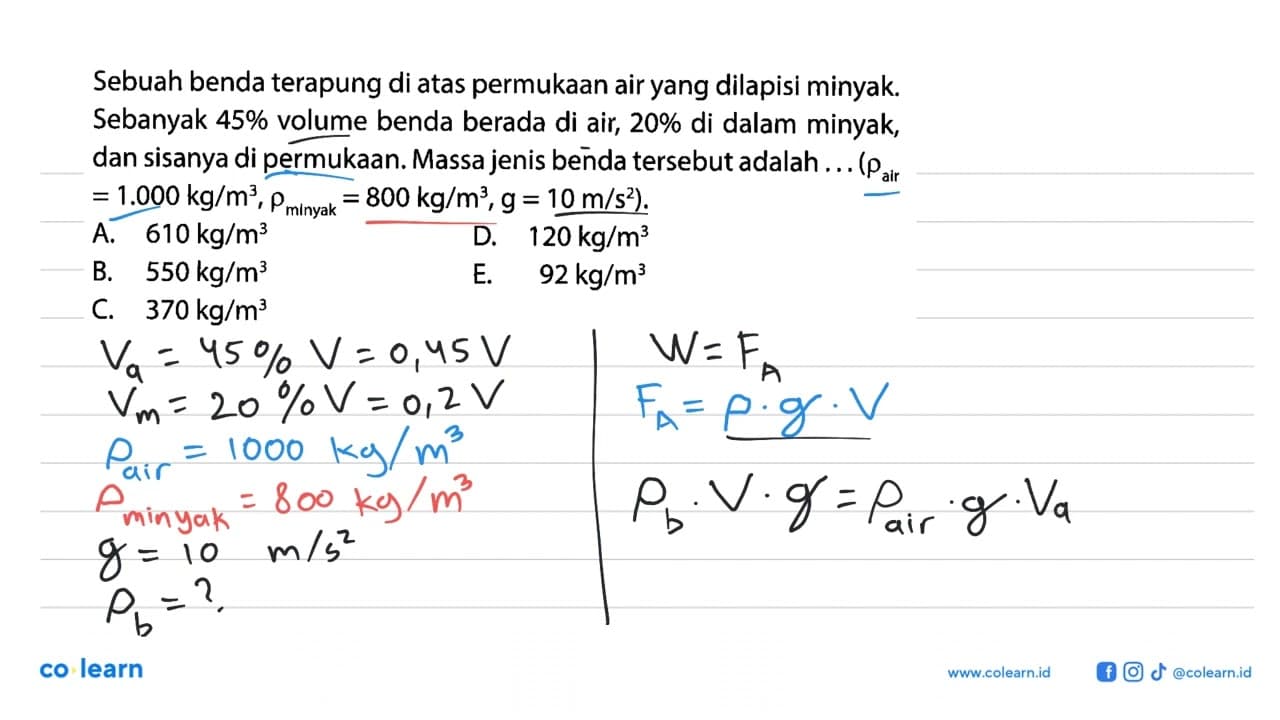 Sebuah benda terapung di atas permukaan air yang dilapisi minyak.
Sebanyak 45% volume benda berada di air, 20% di dalam minyak,
dan sisanya di permukaan. Massa jenis benda tersebut adalah ... (ρair
= 1.000 kg/m³, ρminyak = 800 kg/m³, g = 10 m/s²).
A. 610 kg/m³ D. 120 kg/m³
B. 550 kg/m³ E. 92 kg/m³
C. 370 kg/m³
Va = 45% V = 0,45 V
Vm = 20% V = 0,2 V
ρair = 1000 kg/m³
ρminyak = 800 kg/m³
g = 10 m/s²
ρb = ?
W = FA
FA = ρ . g . V
ρb . V . g = ρair . g . Va
co learn
www.colearn.id
@colearn.id